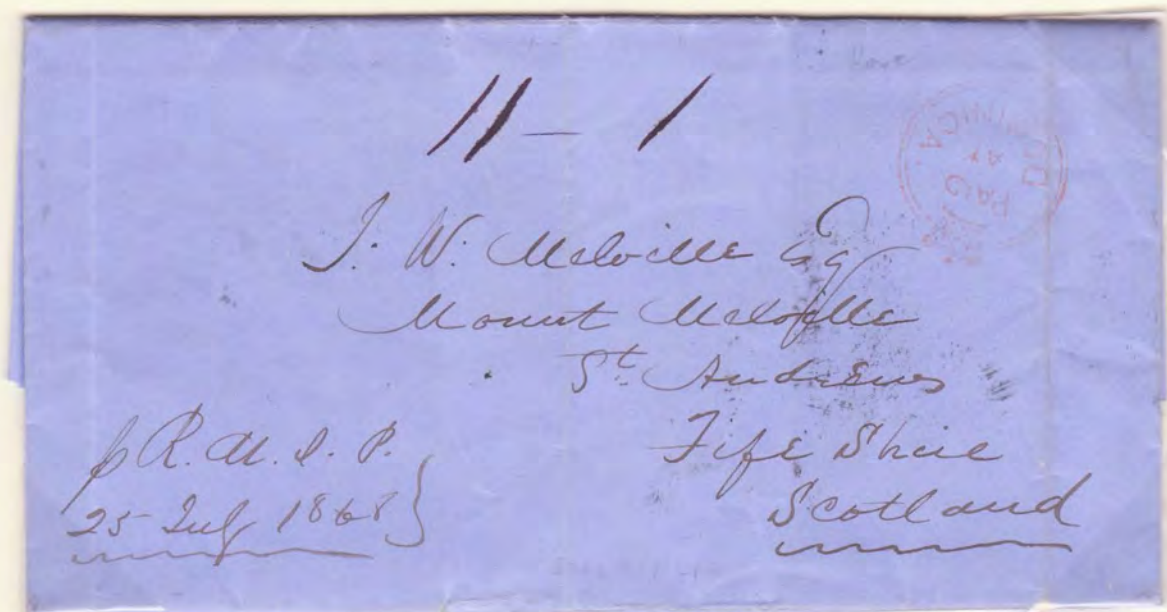 11 - 1
DOMINICA.
PAID
J. W. Melville Esq
Mount Melville
St. Andrews
Fife Shire
Scotland
p R. M. S. P.
25 July 1868